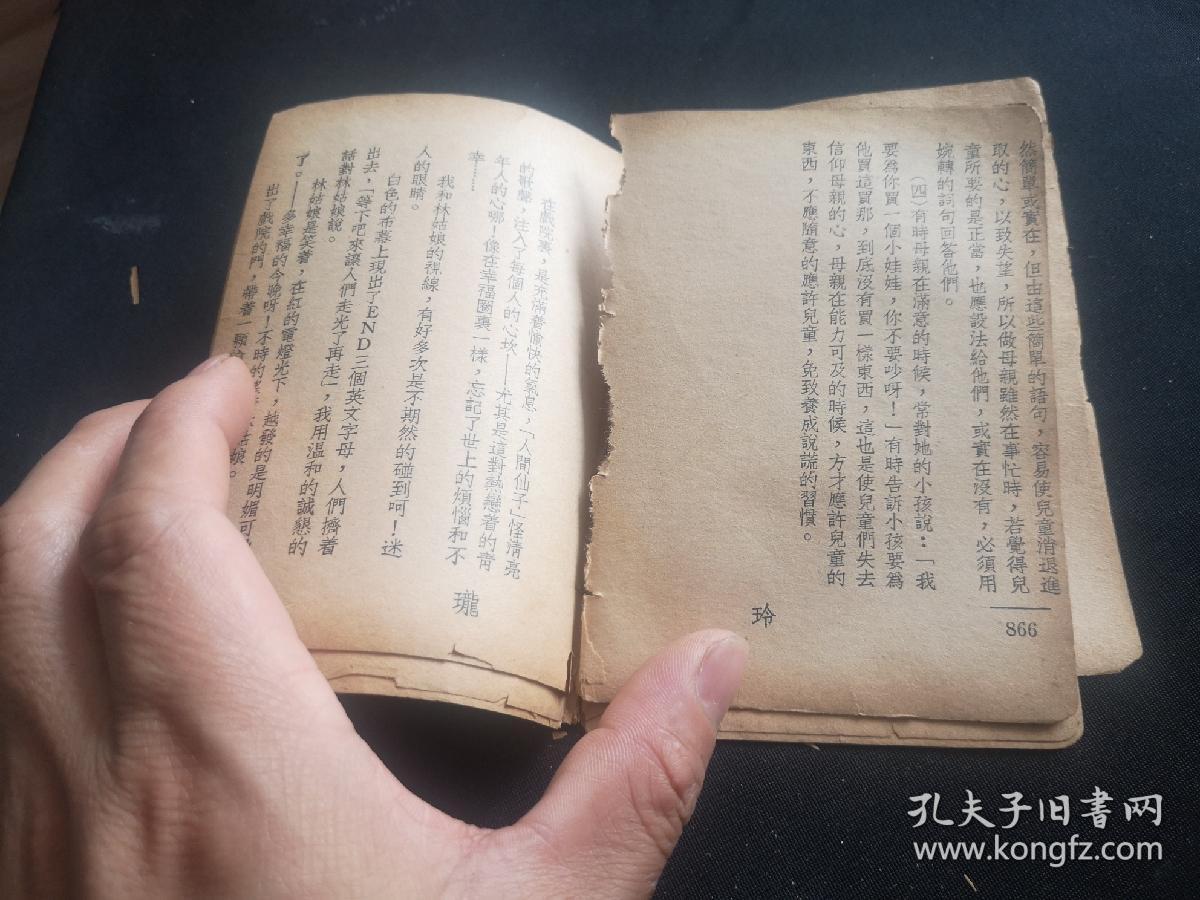 然簡單或實在，但由這些簡單的語句，容易使兒童消退進
取的心，以致失望，所以做母親雖然在事忙時，若覺得兒
童所要的是正當，也應設法給他們，或實在沒有，必須用
婉轉的詞句回答他們。
（四）有時母親在滿意的時候，常對她的小孩說：「我
要爲你買一個小娃娃，你不要吵呀！」有時告訴小孩要爲
他買這買那，到底沒有買一樣東西，這也是使兒童們失去
信仰母親的心，母親在能力可及的時候，方才應許兒童的
東西，不應隨意的應許兒童，免致養成說謊的習慣。
866
玲
在戲院裏，是充滿着愉快的氣息，「人間仙子」怪清亮
的歌聲，注入了每個人的心坎——尤其是這對熱戀着的青
年人的心哪！像在幸福圈裏一樣，忘記了世上的煩惱和不
幸……
我和林姑娘的視線，有好多次是不期然的碰到呵！迷
人的眼睛。
白色的布幕上現出了END三個英文字母，人們擠着
出去，「等下吧來讓人們走光了再走」，我用溫和的誠懇的
話對林姑娘說。
林姑娘是笑着，在紅的電燈光下，越發的是明媚可
了。——多幸福的今晚呀！不時的
姑娘。
出了戲院的門，帶着一顆
瓏
孔夫子旧書网
www.kongfz.com